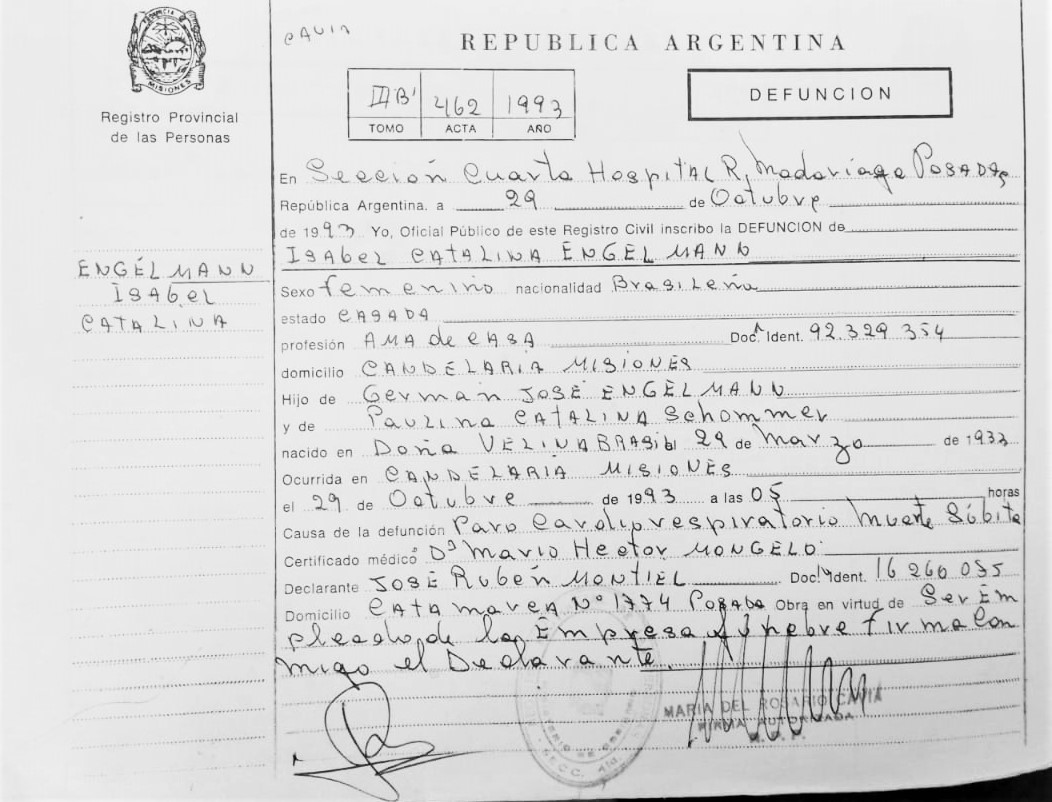 PROVINCIA DE
MISIONES
Registro Provincial
de las Personas
REPUBLICA ARGENTINA
462 1993
TOMO ACTA AÑO
DEFUNCION
En Sección Cuarta Hospital R. Madariaga Posadas
República Argentina. a 29 de Octubre
de 1993 Yo, Oficial Público de este Registro Civil inscribo la DEFUNCION de
Isabel CATALINA ENGELMANN
ENGELMANN
Isabel
CATALINA
Sexo femenino nacionalidad Brasileña
estado CASADA
profesión AMA de CASA Doc. Ident. 92.329.354
domicilio CANDELARIA MISIONES
Hijo de Germán JOSÉ ENGELMANN
y de Paulina CATALINA Schommer
nacido en Doña VELINA BRASIL 29 de Marzo de 1933
Ocurrida en CANDELARIA MISIONES
el 29 de Octubre de 1993 a las 05 horas
Causa de la defunción Paro Cardiorespiratorio Muerte Súbita
Certificado médico Dr Mario Hector MONGELO
Declarante JOSÉ Rubén MONTIEL Doc. Ident. 16 260 055
Domicilio CATAMARCA Nº 1774 Posadas Obra en virtud de Ser Em
pleado de la Empresa fúnebre firma con
migo el Declarante.
MARIA DEL ROSARIO CAVIA
FIRMA AUTORIZADA